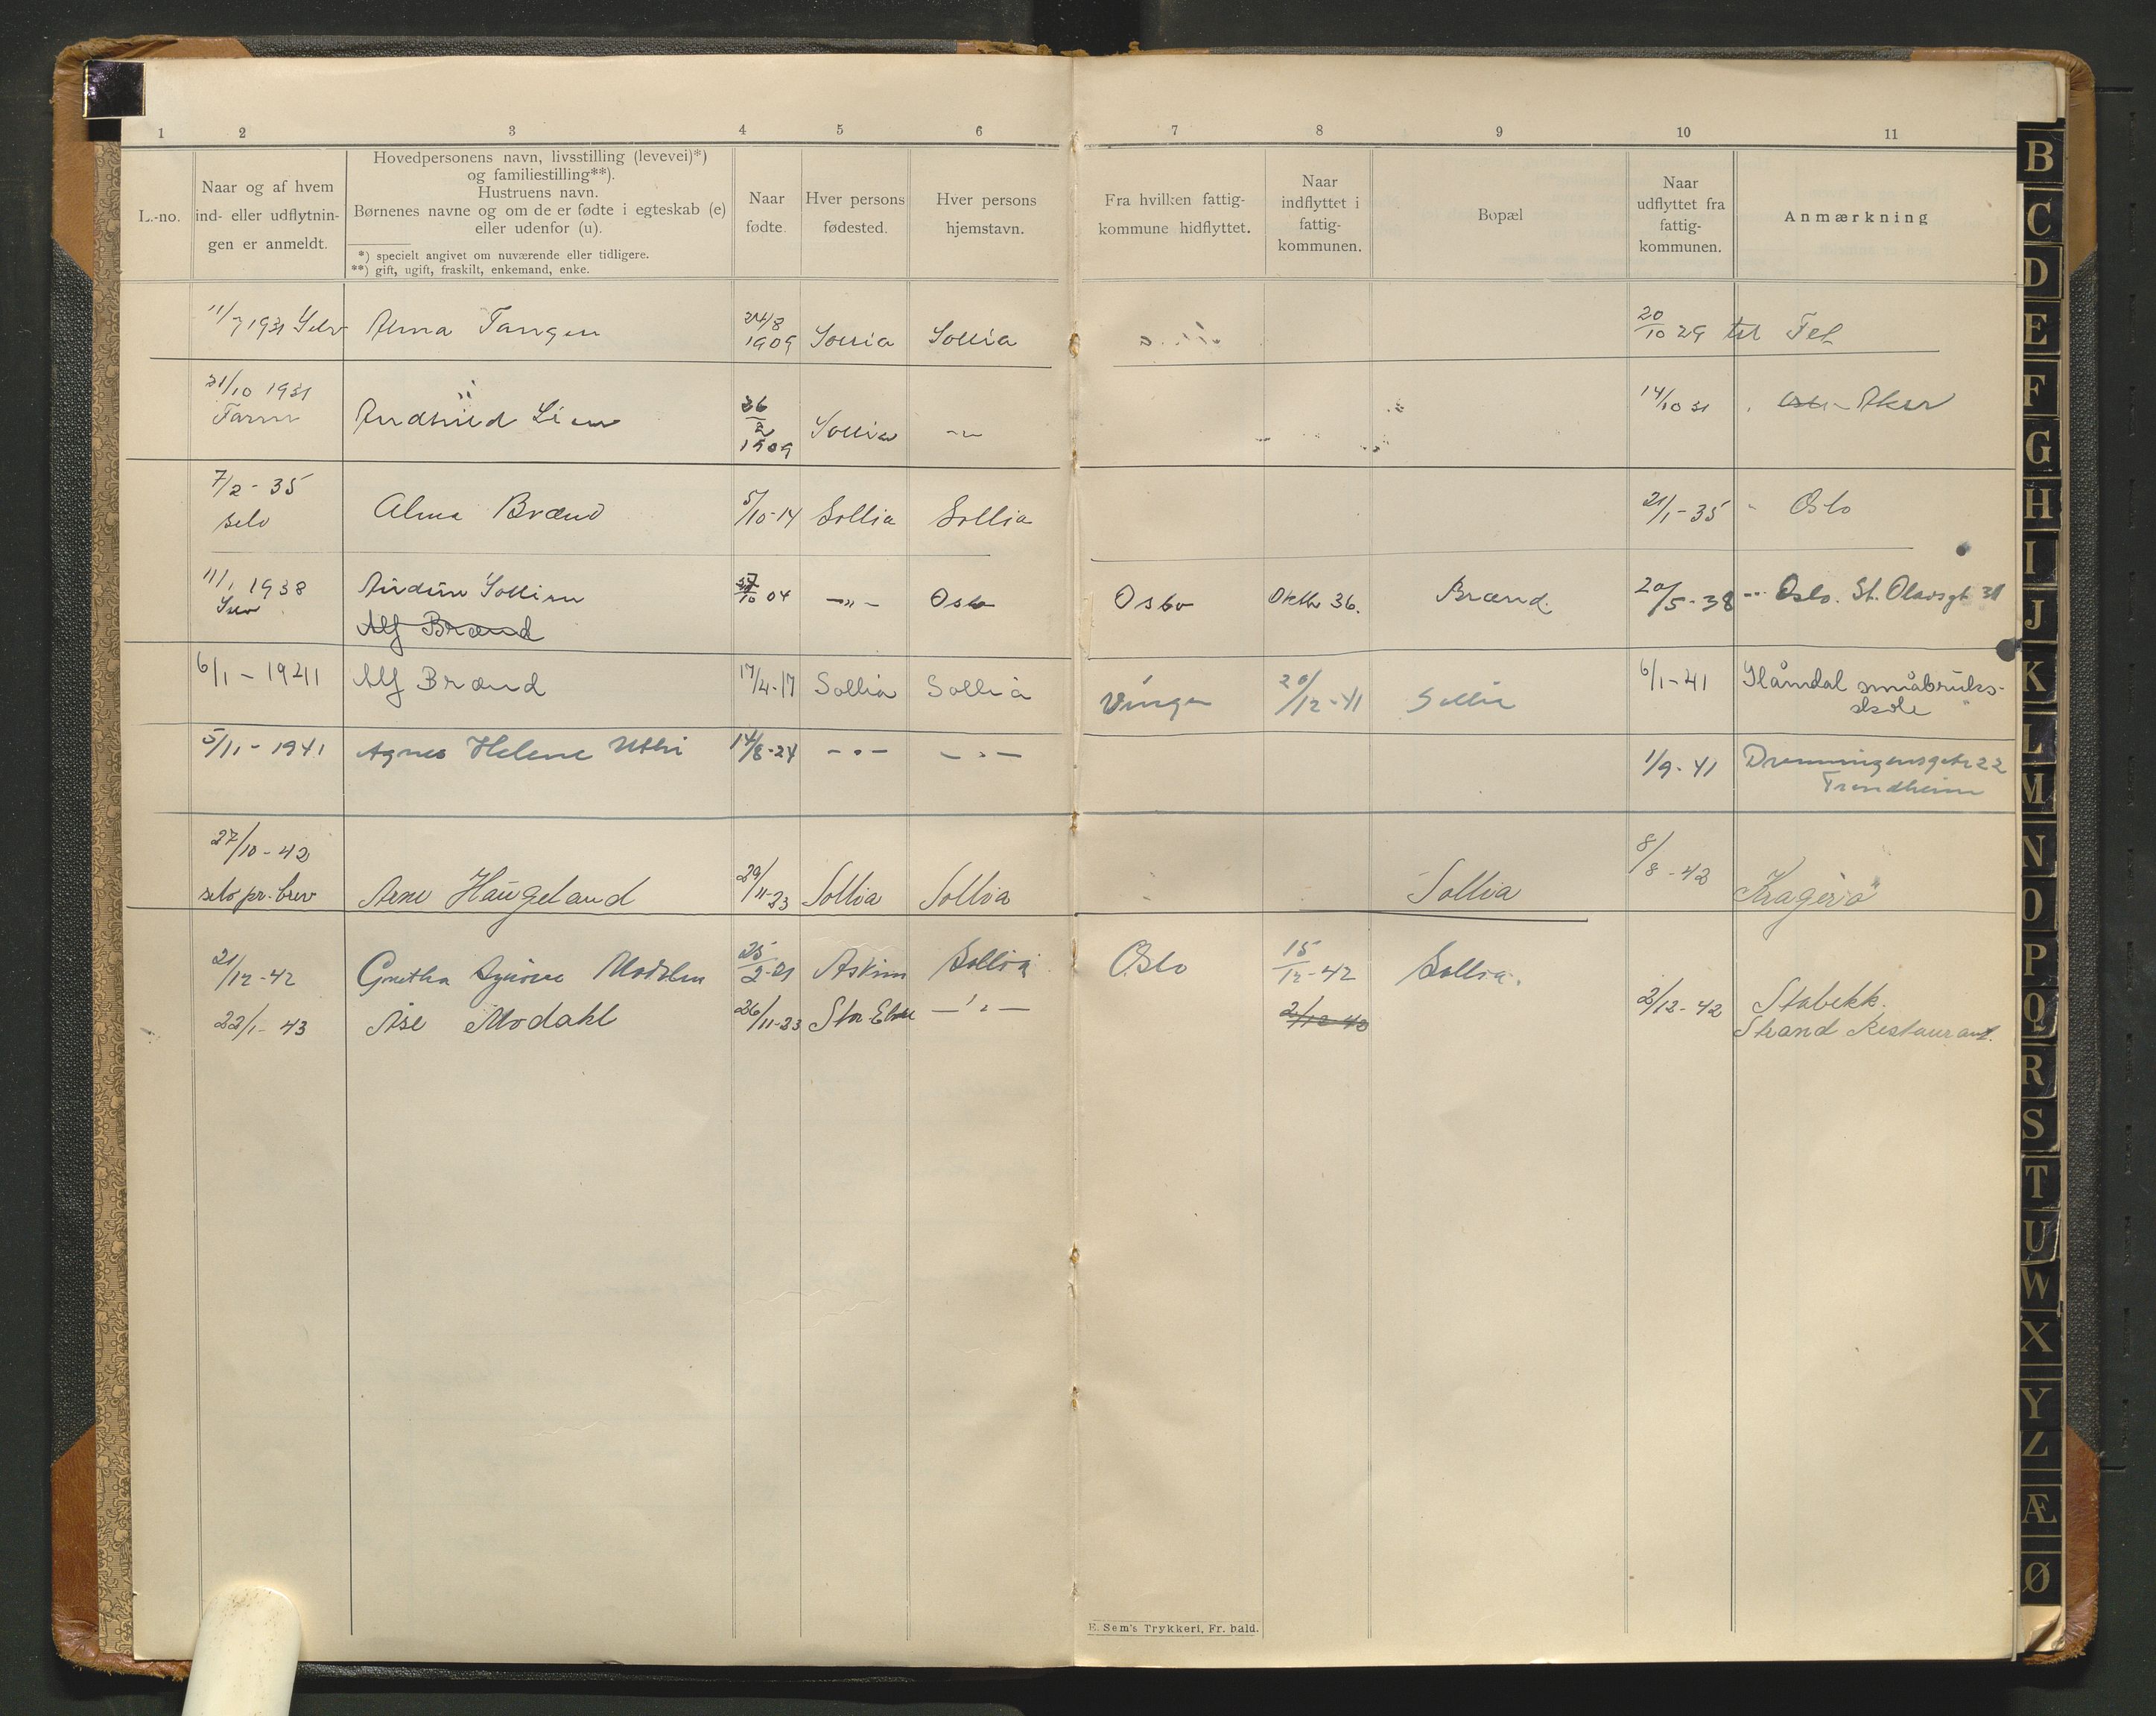 1 2 3 4 5 6 7 8 9 10 11
L.-no.
Naar og af hvem
ind- eller udflytnin-
gen er anmeldt.
Hovedpersonens navn, livsstilling (levevei)*)
og familiestilling**).
Hustruens navn.
Børnenes navne og om de er fødte i egteskab (e)
eller udenfor (u).
*) specielt angivet om nuværende eller tidligere.
**) gift, ugift, fraskilt, enkemand, enke.
Naar
fødte.
Hver persons
fødested.
Hver persons
hjemstavn.
Fra hvilken fattig-
kommune hidflyttet.
Naar
indflyttet i
fattig-
kommunen.
Bopæl
Naar
udflyttet fra
fattig-
kommunen.
Anmærkning
11/7 1931 Selv Alma Tangen 24/8 1909 Sollia Sollia 20/10 29 til Fet
21/10 1931
Lien 26/2 1909 Sollia -"- 14/10 31 Aker
7/2 - 35
selv Alma Brænd 5/10-14 Sollia Sollia 21/1-35 " Oslo
11/1 1938 Audun Sollien 10 04 -"- Oslo Oslo Oktbr 36. Brænd. 20/5-38 -"- Oslo. St. Olavsgt 31
Selv Alf Brænd
6/1 - 1941 Alf Brænd 17/4-17 Sollia Sollia Vinger 20/12-41 Sollia 6/1-41 småbruks-
skole
5/11 - 1941 Agnes Helene Uthi 14/8-24 -"- -"- 1/9-41 Dronningensgate 22
Trondheim
27/10-42
selv pr. brev Arne Haugeland 29/11-23 Sollia Sollia Sollia 8/8-42 Kragerø
21/12-42 25/2-21 Askim Sollia Oslo 15/12-42 Sollia.
22/1-43 Åse Modahl 26/11-23 Stor-Elvdal -"- 2/12-42 2/12-42 Stabekk.
Strand Restaurant.
E. Sem's Trykkeri, Fr. hald.
B
C
D
E
F
G
H
I
J
K
L
M
N
O
P
Q
R
S
T
U
W
X
Y
Z
Æ
Ø